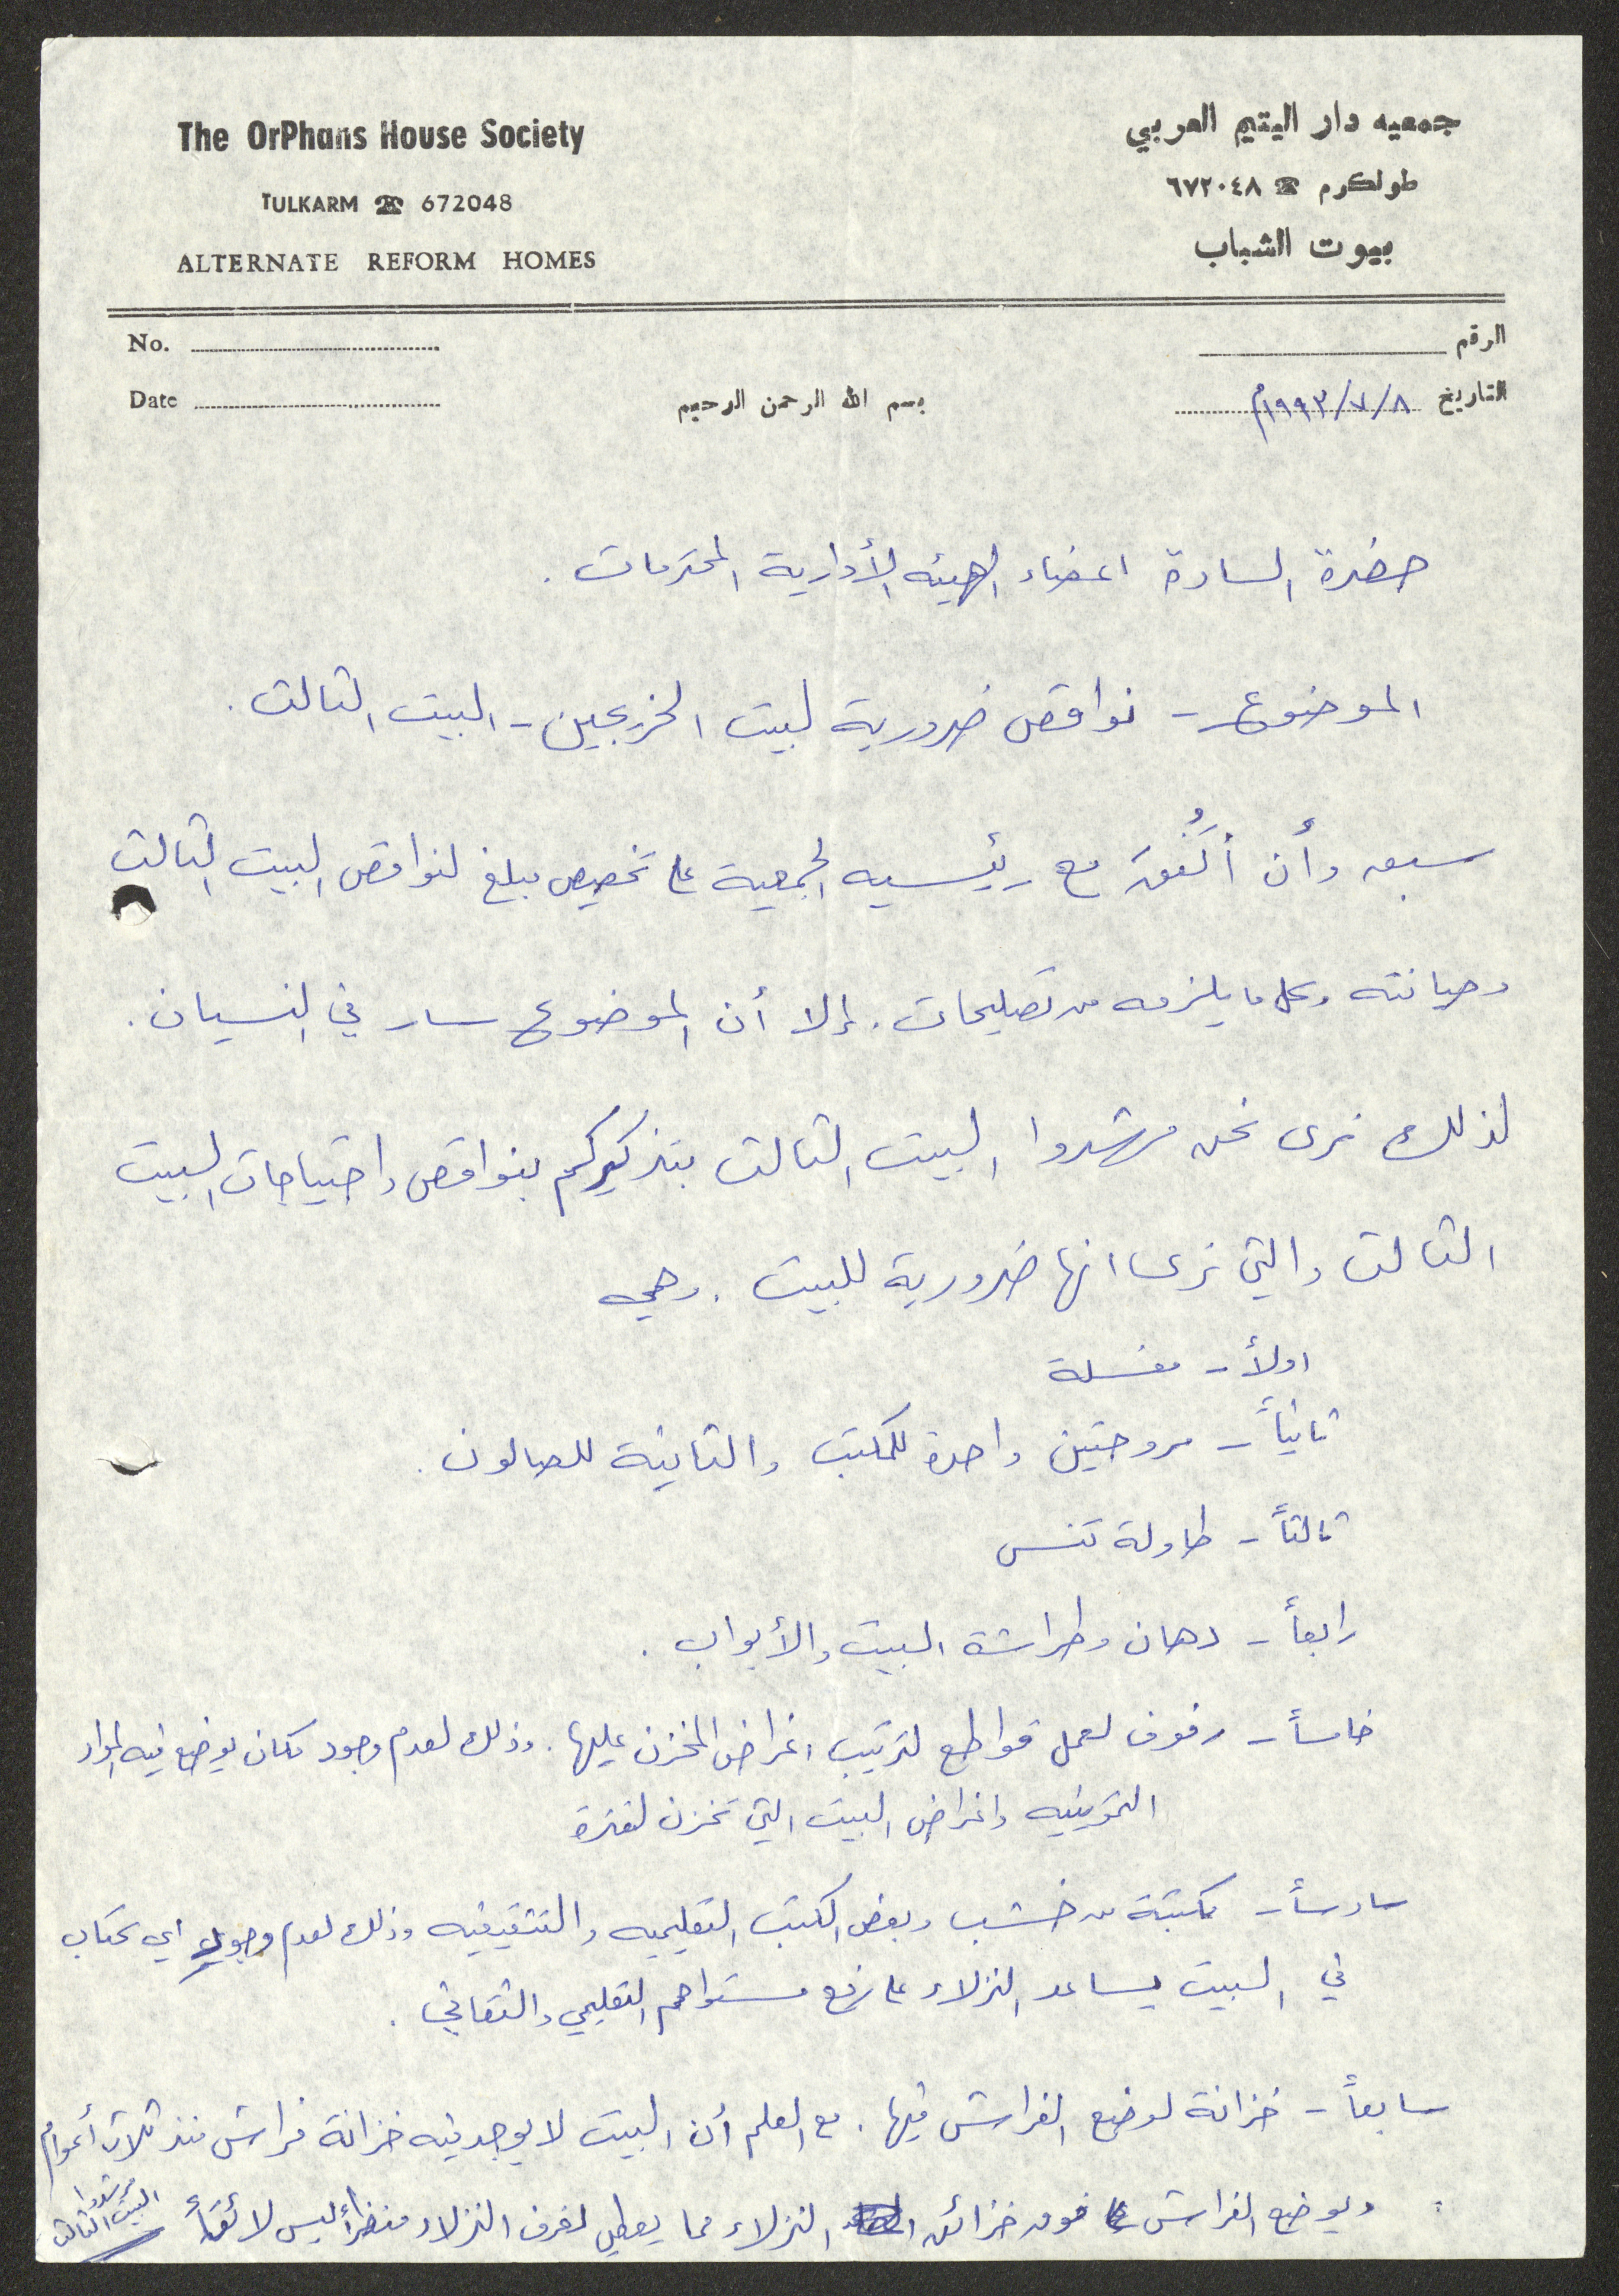 The OrPhans House Society
TULKARM ☎ 672048
ALTERNATE REFORM HOMES
جمعيه دار اليتيم العربي
طولكرم ☎ ٦٧٢٠٤٨
بيوت الشباب
No.
Date
الرقم
التاريخ ٨/٧/١٩٩٣م
بسم الله الرحمن الرحيم
حضرة السادة اعضاء الهيئه الأدارية المحترمات .
الموضوع - نواقص ضرورية لبيت الخريجين - البيت الثالث .
سبق وأن أتُفق مع رئيسيه الجمعية على تخصيص مبلغ لنواقص البيت الثالث
وصيانته وكل ما يلزمه من تصليحات . إلا أن الموضوع سار في النسيان .
لذلك نرى نحن مرشدوا البيت الثالث بتذكيركم بنواقص واحتياجات البيت
الثالث والتي نرى انها ضرورية للبيت . وهي
اولأ - مغسلة
ثانيأ - مروحتين واحدة للمكتب والثانية للصالون .
ثالثأ - طاولة تنس
رابعأ - دهان وطراشة البيت والأبواب .
خامسأ - رفوف لعمل قواطع لترتيب اغراض المخزن عليها . وذلك لعدم وجود مكان يوضع فيه المواد
التموينيه واغراض البيت التي تخزن لفترة
سادسأ - مكتبة من خشب وبعض الكتب التعليميه والتثقيفيه وذلك لعدم وجود اي كتاب
في البيت يساعد النزلاء على رفع مستواهم التعليمي والثقافي .
سابعأ - خزانة لوضع الفراش فيها . مع العلم أن البيت لا يوجد فيه خزانة فراش منذ ثلاث أعوام
ويوضع الفراش فوق خزائن النزلاء مما يعطي لغرف النزلاء منظرأ ليس لائقأ
مرشدوا
البيت الثالث